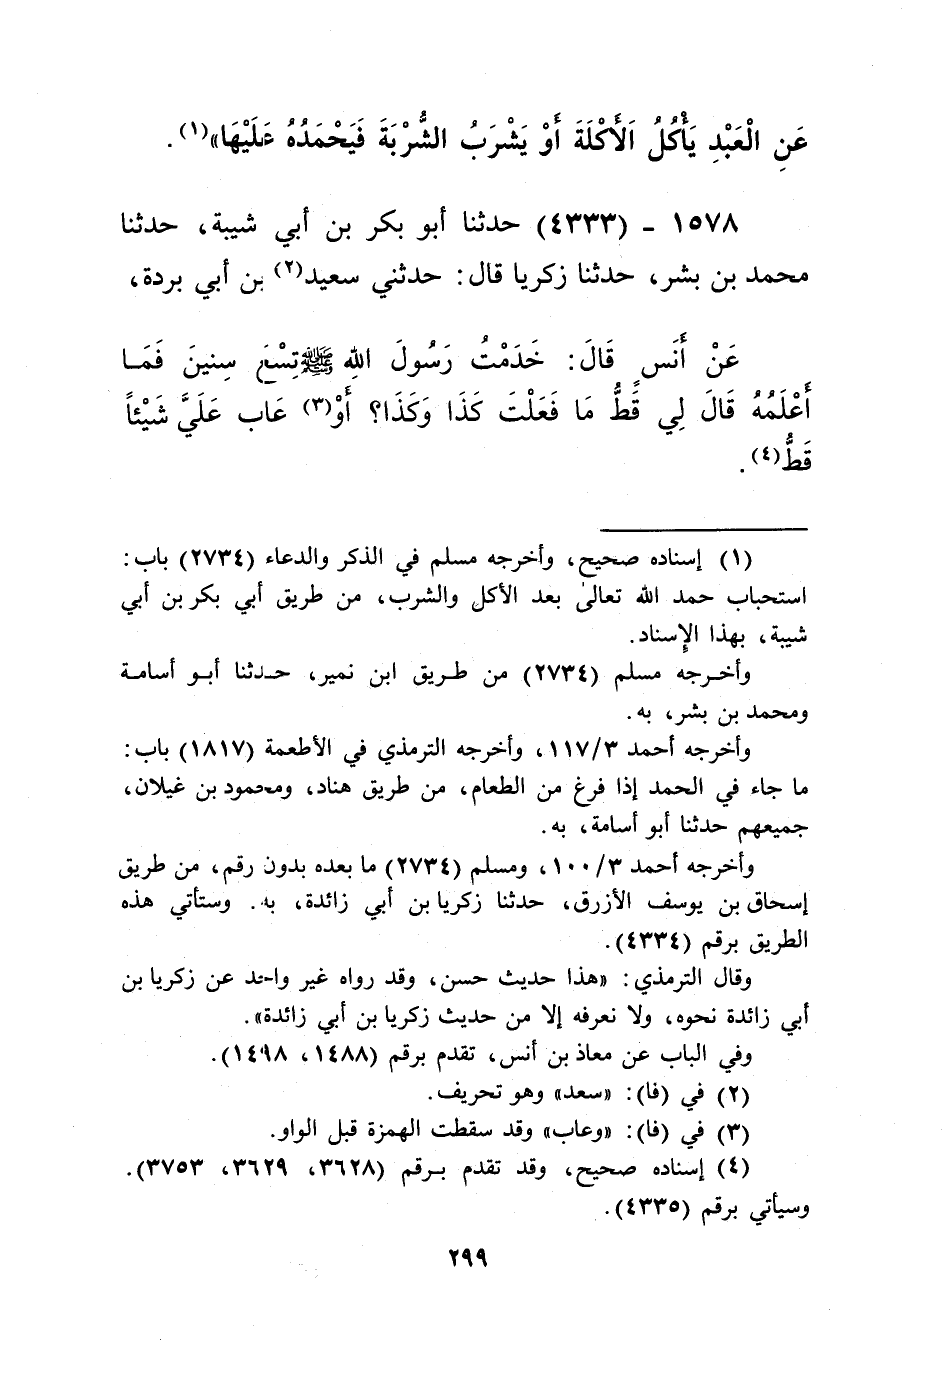 عَنِ الْعَبْدِ يَأْكُلُ الأَكْلَةَ أَوْ يَشْرَبُ الشُّرْبَةَ فَيَحْمَدُهُ عَلَيْهَا»(١).
١٥٧٨ - (٤٣٣٣) حدثنا أبو بكر بن أبي شيبة، حدثنا
محمد بن بشر، حدثنا زكريا قال: حدثني سعيد(٢) بن أبي بردة،
عَنْ أَنَسٍ قَالَ: خَدَمْتُ رَسُولَ اللهِ ﷺ تِسْعَ سِنِينَ فَمَا
أَعْلَمُهُ قَالَ لِي قَطُّ مَا فَعَلْتَ كَذَا وَكَذَا؟ أَوْ(٣) عَابَ عَلَيَّ شَيْئاً
قَطُّ(٤).
(١) إسناده صحيح، وأخرجه مسلم في الذكر والدعاء (٢٧٣٤) باب:
استحباب حمد الله تعالىٰ بعد الأكل والشرب، من طريق أبي بكر بن أبي
شيبة، بهذا الإِسناد.
وأخرجه مسلم (٢٧٣٤) من طريق ابن نمير، حدثنا أبو أسامة
ومحمد بن بشر، به.
وأخرجه أحمد ١١٧/٣، وأخرجه الترمذي في الأطعمة (١٨١٧) باب:
ما جاء في الحمد إذا فرغ من الطعام، من طريق هناد، ومحمود بن غيلان،
جميعهم حدثنا أبو أسامة، به.
وأخرجه أحمد ١٠٠/٣، ومسلم (٢٧٣٤) ما بعده بدون رقم، من طريق
إسحاق بن يوسف الأزرق، حدثنا زكريا بن أبي زائدة، به. وستأتي هذه
الطريق برقم (٤٣٣٤).
وقال الترمذي: «هذا حديث حسن، وقد رواه غير واحد عن زكريا بن
أبي زائدة نحوه، ولا نعرفه إلا من حديث زكريا بن أبي زائدة».
وفي الباب عن معاذ بن أنس، تقدم برقم (١٤٨٨، ١٤٩٨).
(٢) في (فا): «سعد» وهو تحريف.
(٣) في (فا): «وعاب» وقد سقطت الهمزة قبل الواو.
(٤) إسناده صحيح، وقد تقدم برقم (٣٦٢٨، ٣٦٢٩، ٣٧٥٣).
وسيأتي برقم (٤٣٣٥).
٢٩٩